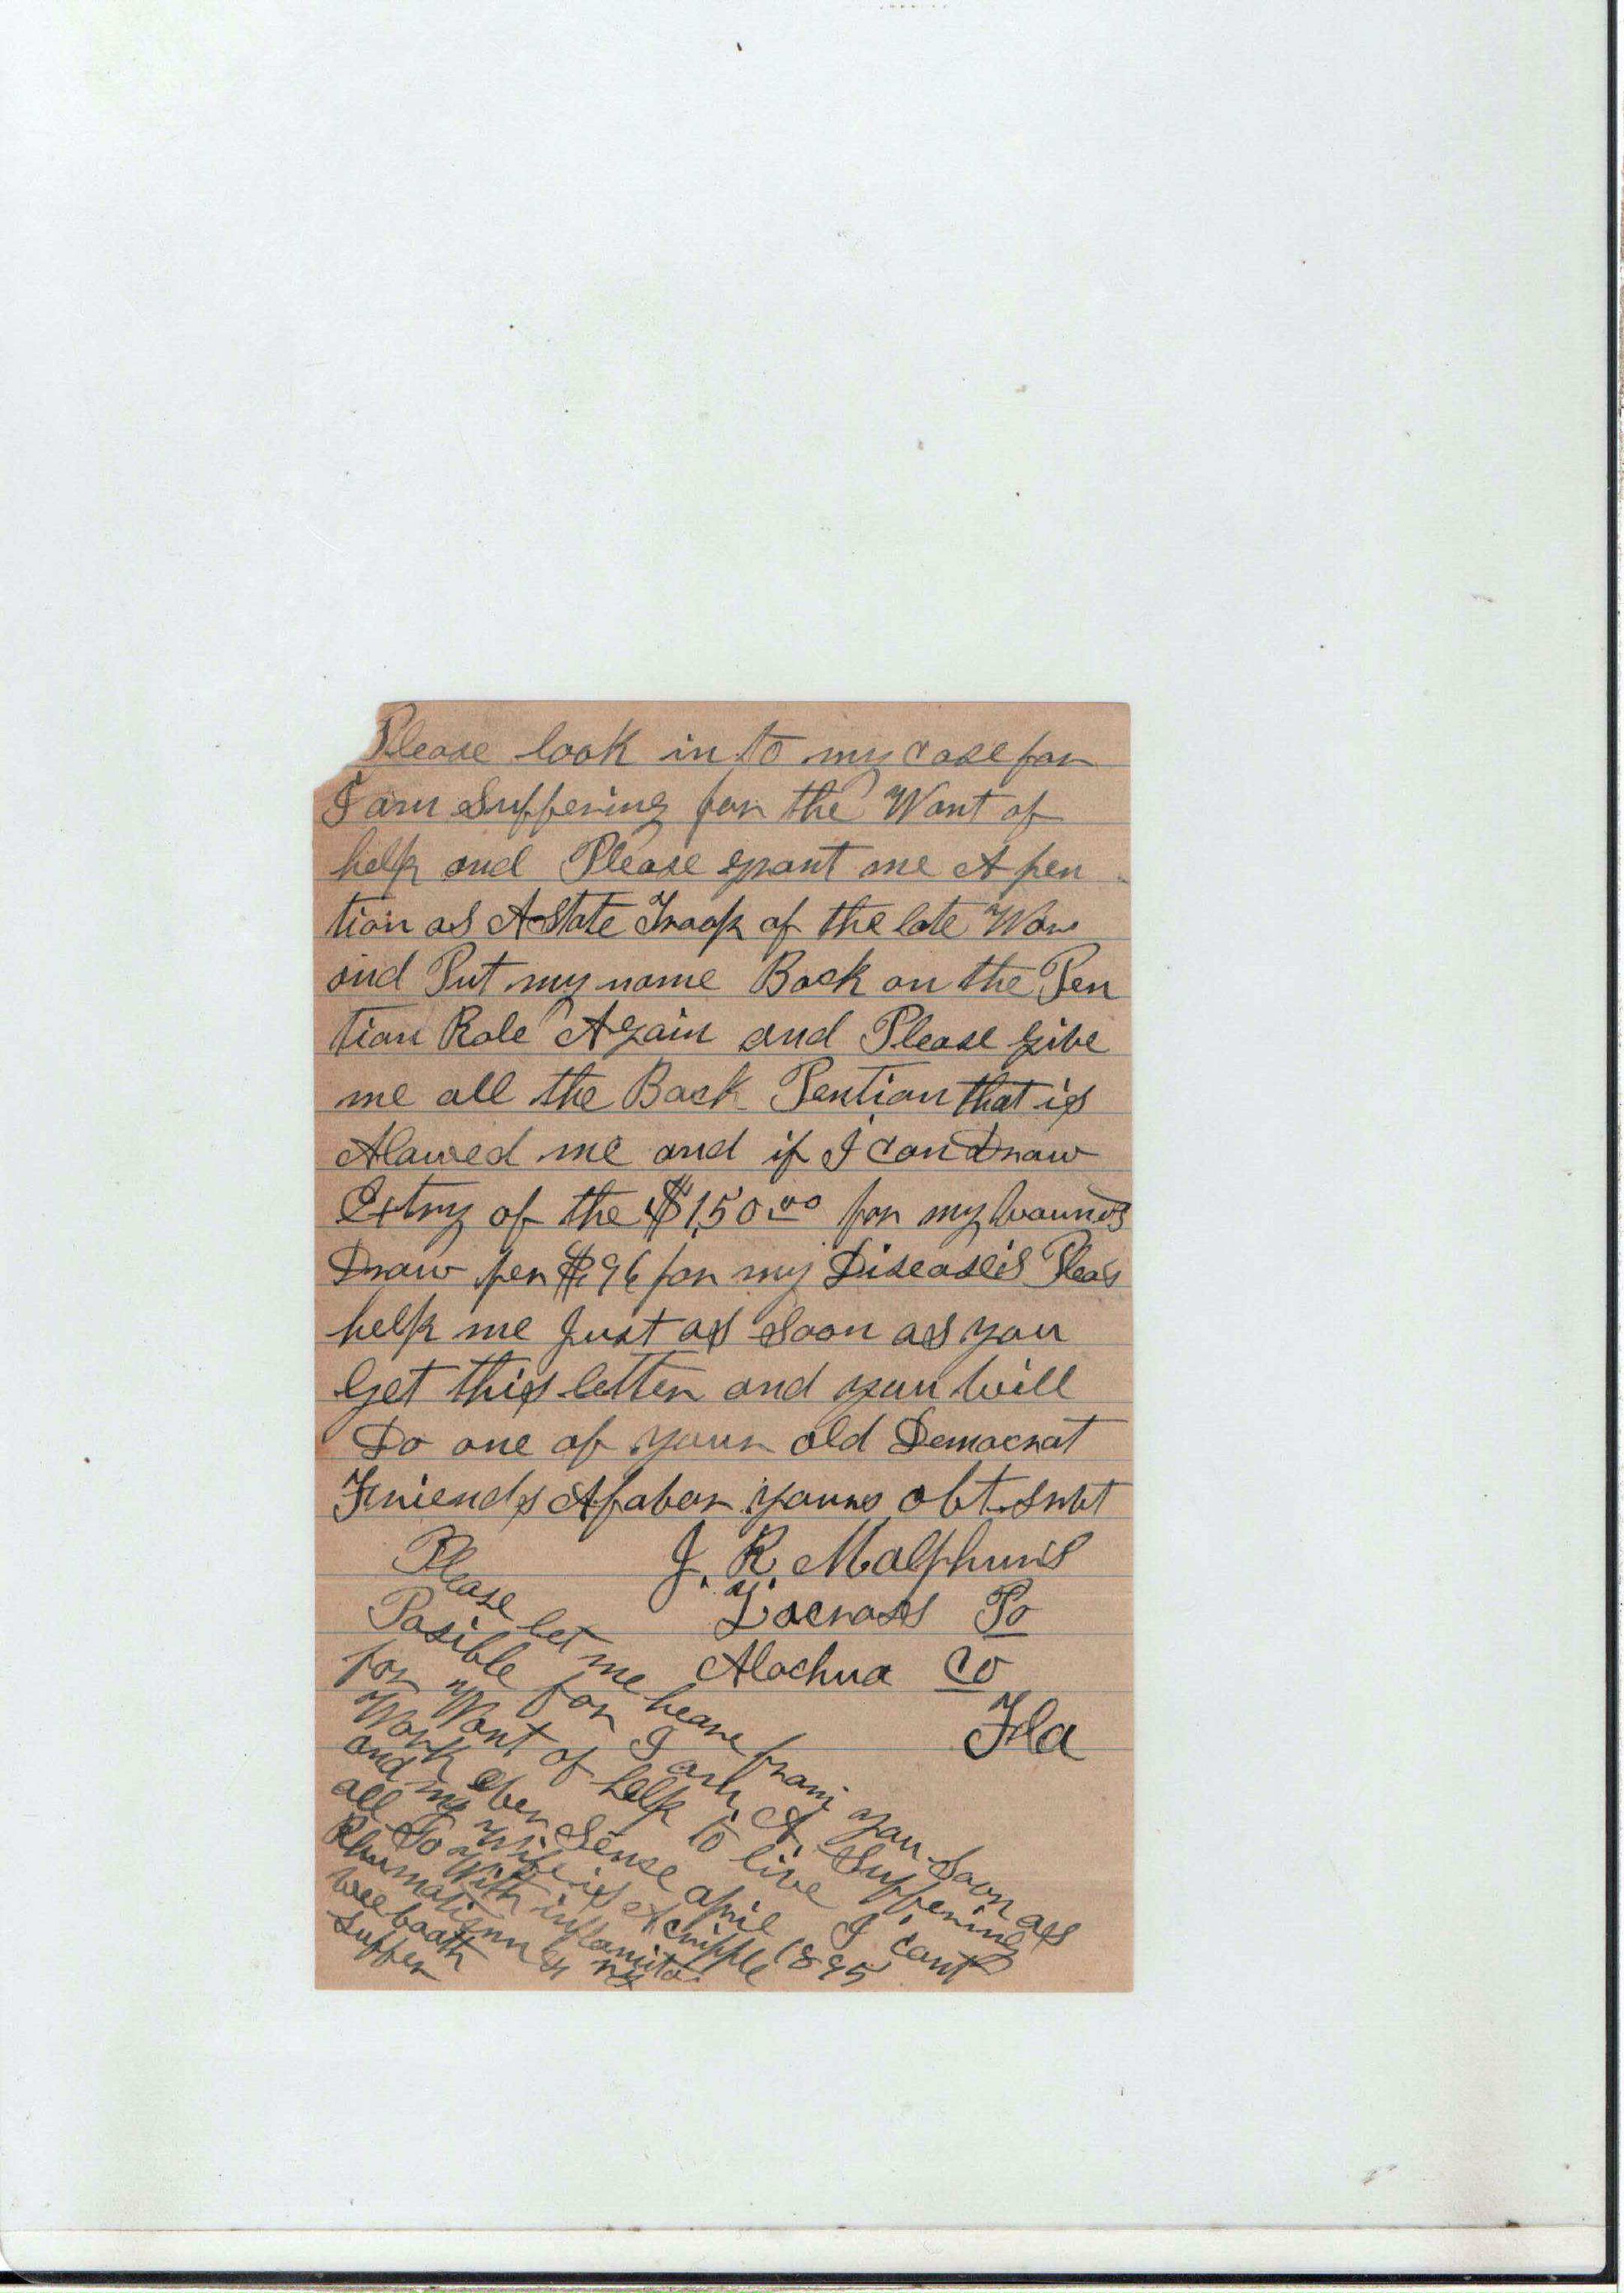 Please look in to my case for
I am Suffering for the Want of
help and Please grant me A pen
tion as A State Troop of the late War
and Put my name Back on the Pen
tion Role Again and Please give
me all the Back Pention that is
Alowed me and if I can Draw
Extry of the $150.00 for my wounds
Draw per $96 for my Diseaseis Pleas
help me Just as Soon as you
Get this letter and you will
Do one of your old Democrat
Friends A favor yours obt. Srvt
J. R. Malphurs
Lacross Po
Alachua Co
Fla
Please let me heare from you Soon as
Posible for I am A Suffering
for Want of help to live I cant
Work Ever Sense april 1895
and my Wife is A cripple
all So With inflamitor
Rhumatism
wee boath
Suffer